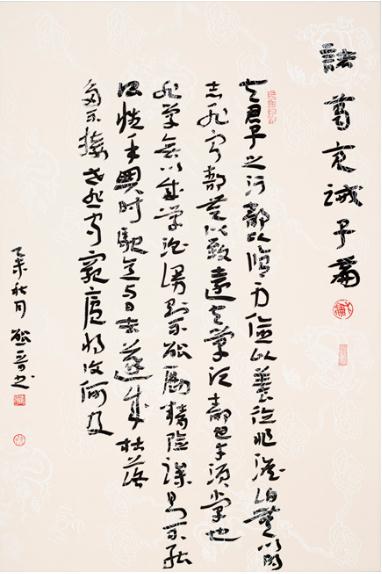 諸葛亮誡子篇
夫君子之行靜以修身儉以養德非澹泊無以明
志非寧靜無以致遠夫學須靜也才須學也
非學無以學慢則不能勵精險躁則不能
治性年與時馳意與日去遂成枯落
多不接世悲守窮廬將復何及
乙未秋月